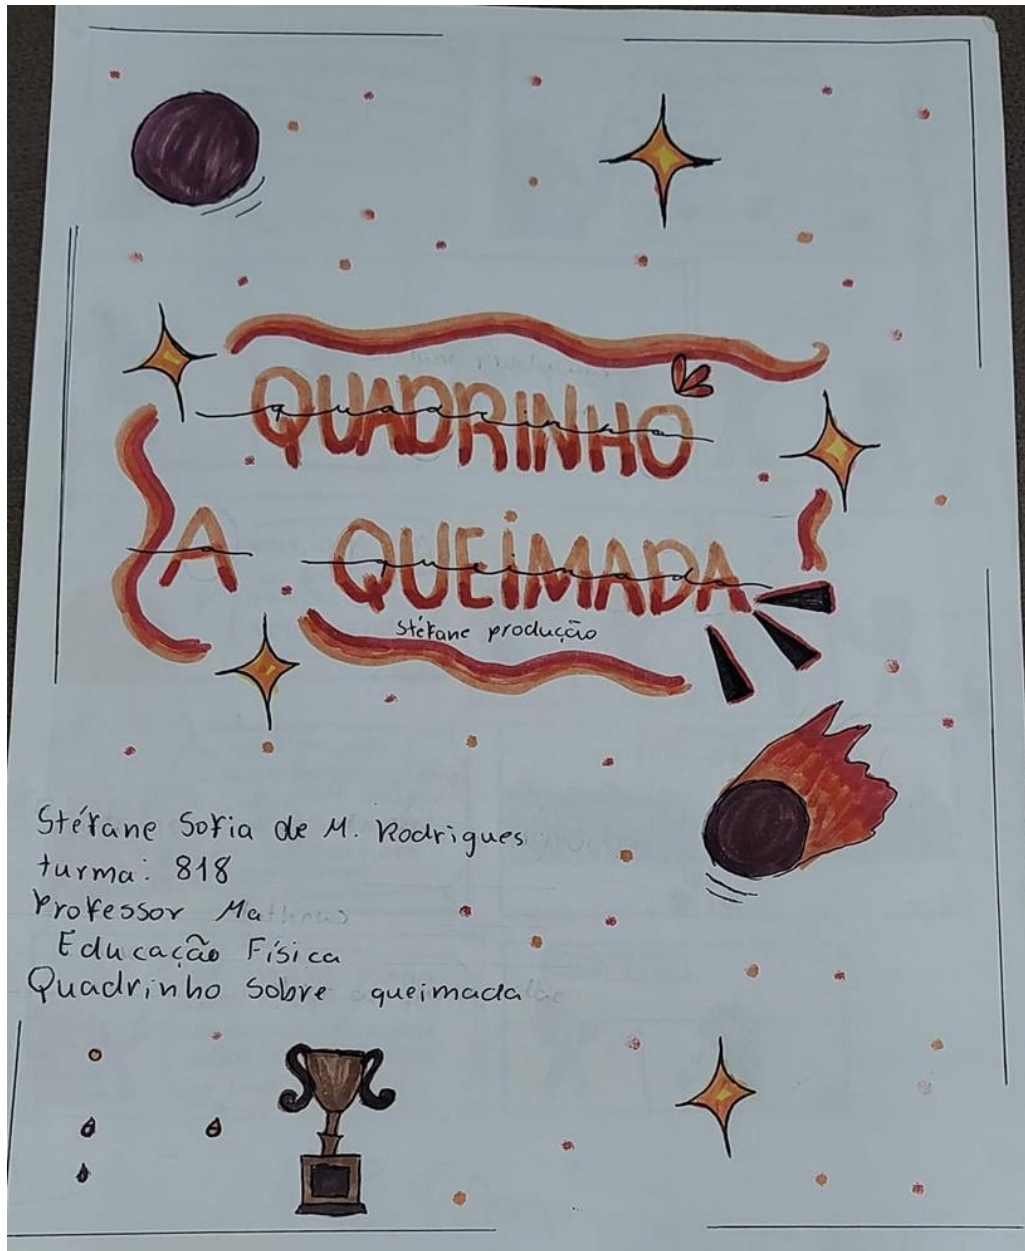 QUADRINHO
quadrinho
A QUEIMADA
a queimada
Stéfane produção
Stéfane Sofia de M. Rodrigues
turma: 818
Professor Matheus
Educação Física
Quadrinho sobre queimada